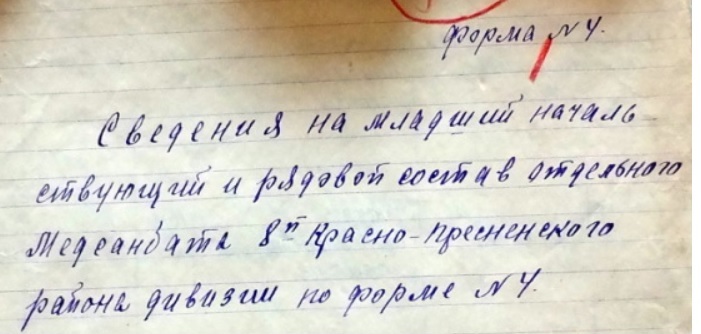 форма N 4.
Сведения на младший началь
ствующий и рядовой состав отдельного
Медсанбата 8й Красно-пресненского
района дивизии по форме N 4.